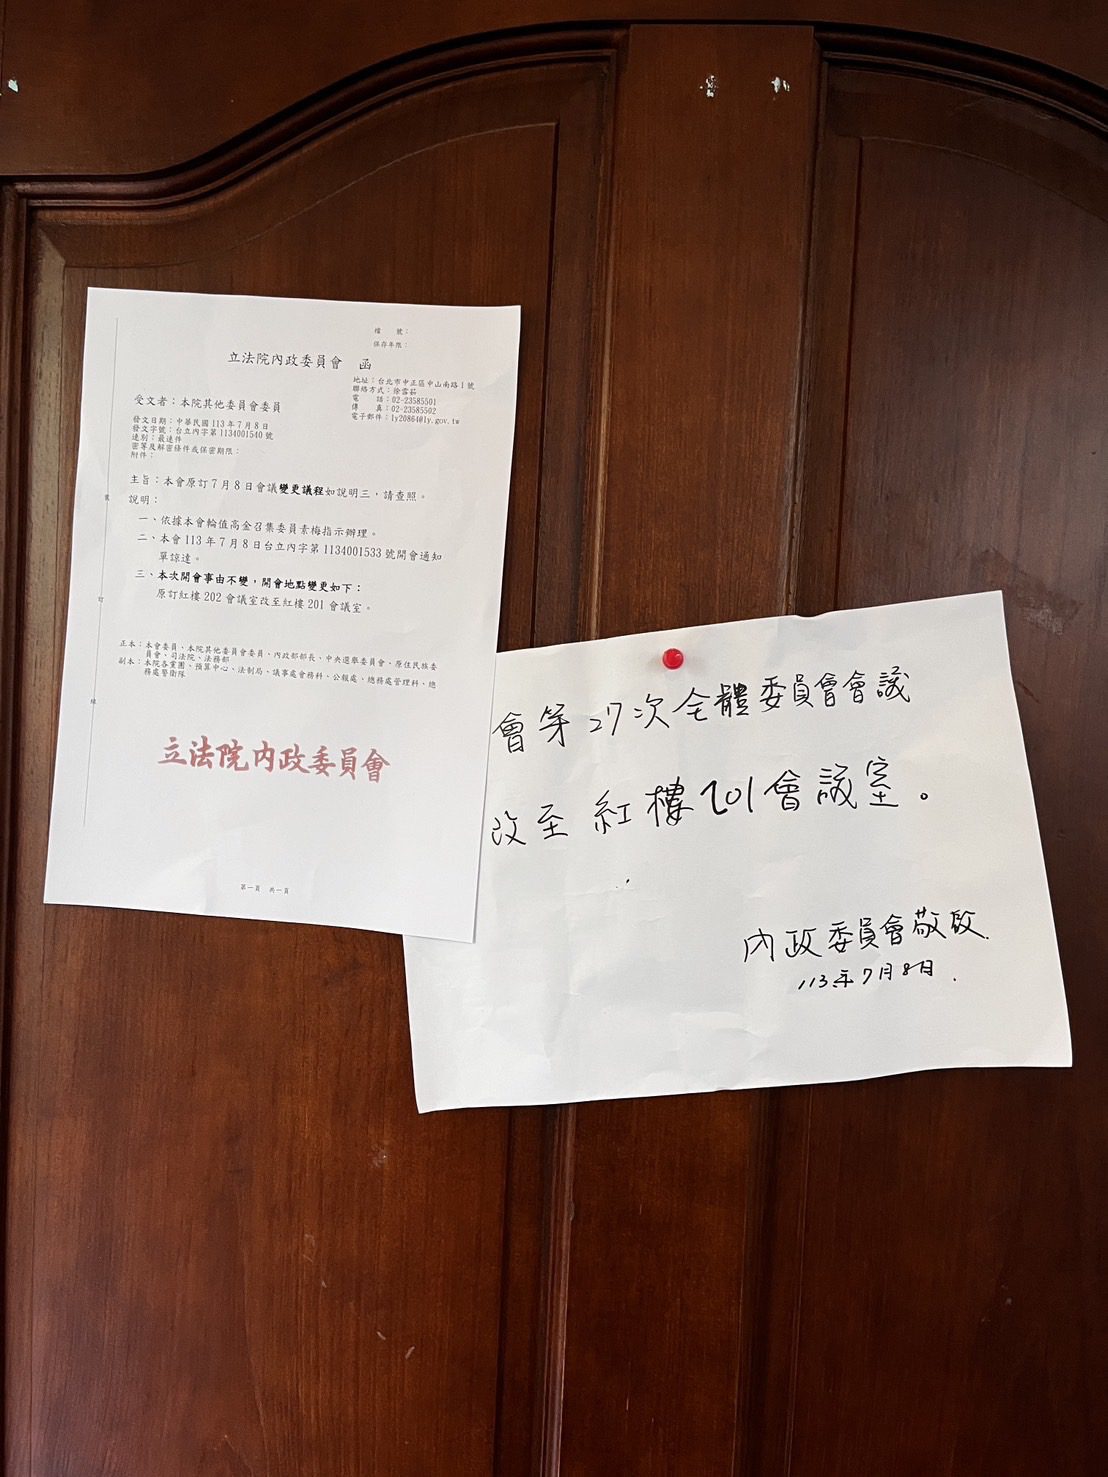 檔　　號：
保存年限：
立法院內政委員會　函
地址：台北市中正區中山南路1號
聯絡方式：徐雪茹
電　　話：02-23585501
傳　　真：02-23585502
電子郵件：ly20864@ly.gov.tw
受文者：本院其他委員會委員
發文日期：中華民國113年7月8日
發文字號：台立內字第1134001540號
速別：最速件
密等及解密條件或保密期限：
附件：
主旨：本會原訂7月8日會議變更議程如說明三，請查照。
說明：
一、依據本會輪值高金召集委員素梅指示辦理。
二、本會113年7月8日台立內字第1134001533號開會通知
單諒達。
三、本次開會事由不變，開會地點變更如下：
原訂紅樓202會議室改至紅樓201會議室。
正本：本會委員、本院其他委員會委員、內政部部長、中央選舉委員會、原住民族委
員會、司法院、法務部
副本：本院各黨團、預算中心、法制局、議事處會務科、公報處、總務處管理科、總
務處警衛隊
立法院內政委員會
第一頁　共一頁
裝
訂
線
會第27次全體委員會會議
改至紅樓201會議室。
內政委員會敬啟.
113年7月8日.